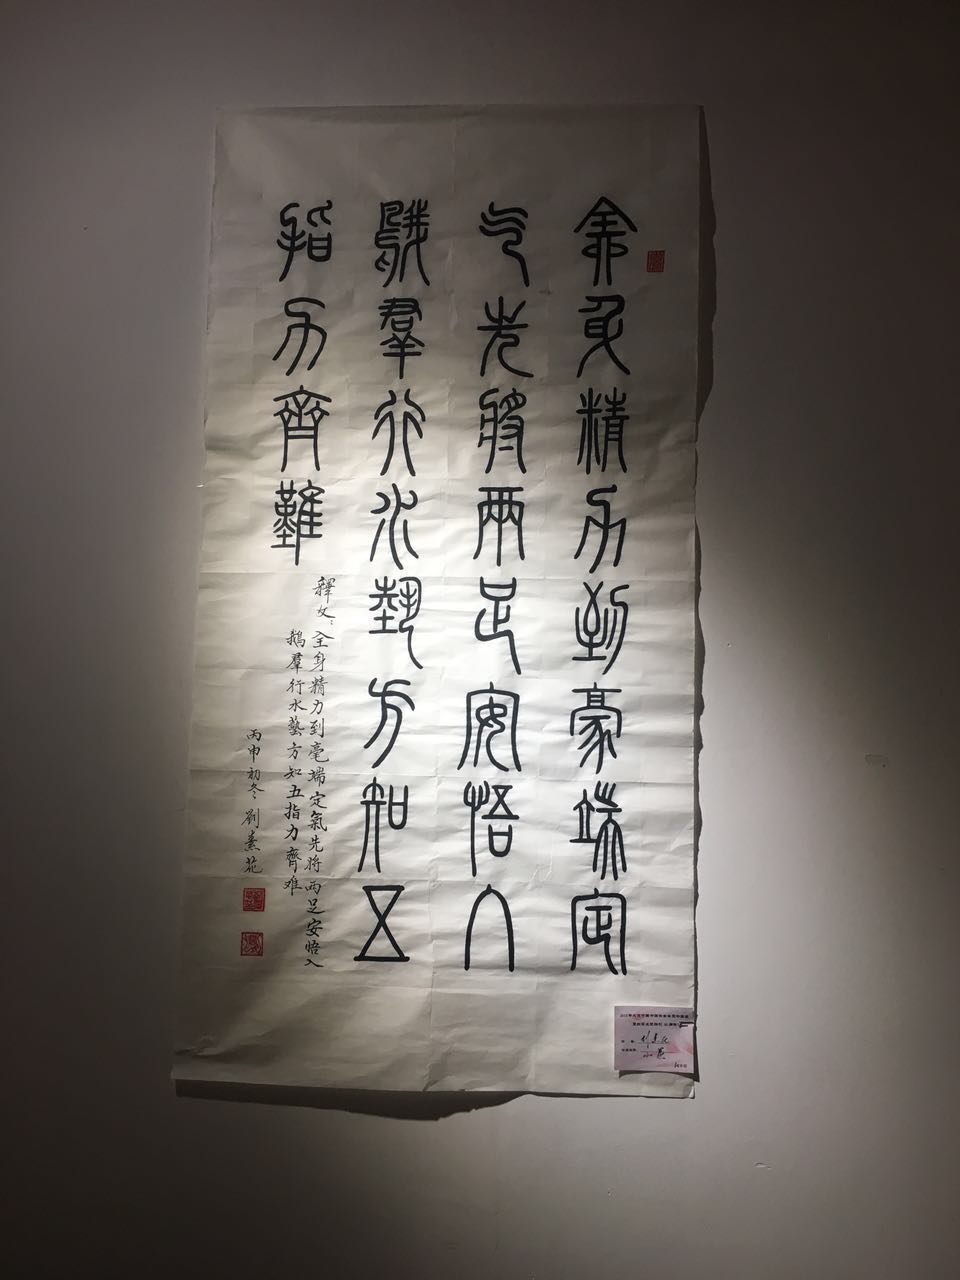 全身精力到豪端定
气先將兩足安悟入
鵝羣行水藝方知五
指力齊難
釋文：全身精力到毫端定氣先將兩足安悟入
鵝羣行水藝方知五指力齊难
丙申初冬劉素花